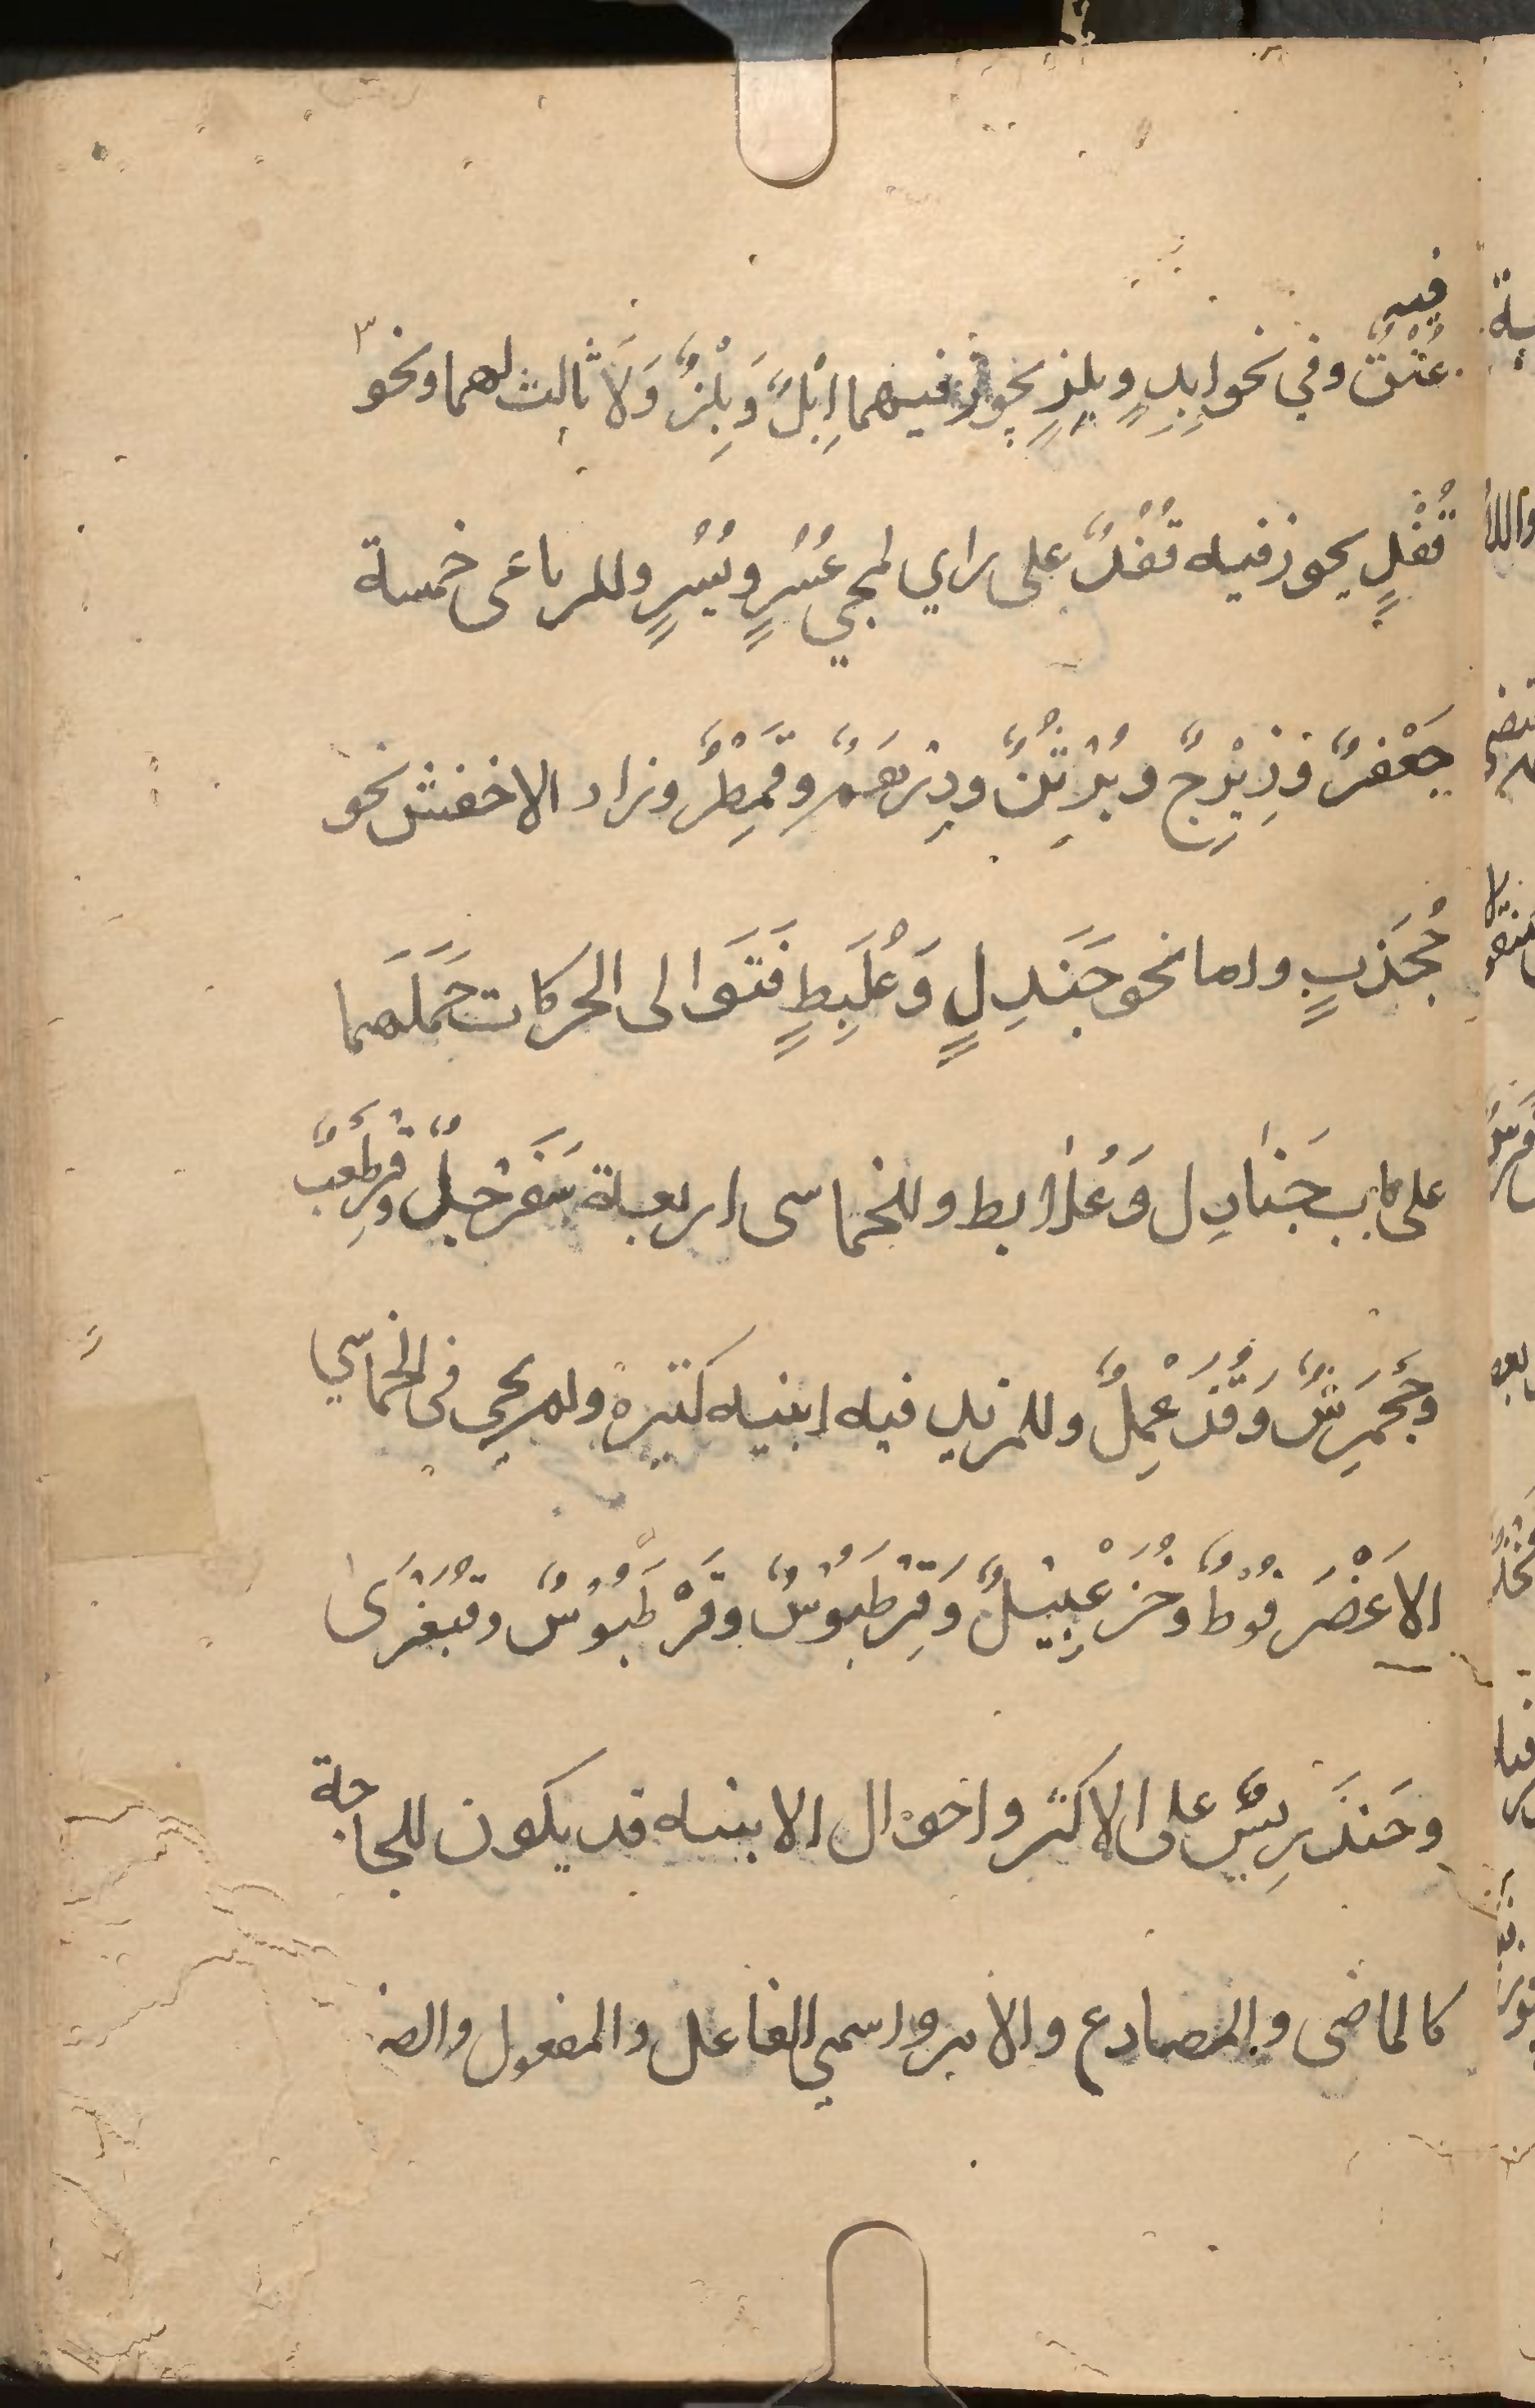 فيه
عُنْقٌ وفي نحو ابِدٍ وبِلِزٍ يجوز فيهما اِبْلٌ وَبِلْزٌ وَلَا ثالث لهما ونحو ٣
قُفْلٍ يجوز فيه قُفُلٌ على راي لمجي عُسُرٍ ويُسُرٍ وللرباعى خمسة
جَعْفرٌ وزِبْرِجٌ وبُرْثُنٌ ودِرْهَمٌ وقِمَطْرٌ وزاد الاخفش نحو
جُخذَبٍ واما نحو جَنَدِلٍ وَعُلَبِطٍ فَتَوَالى الحركات حَمَلَهما
على باب جَنادِل وَعُلابط وللخماسى اربعة سَفَرْجلٌ وقِرْطَعبٌ
وجَحْمَرِشٌ وَقُذَعْمِلٌ وللمزيد فيه ابنيه كثيرة ولم يجي فى الخماسي
الا عَضْرَفُوْطٌ وخُزَعْبِيْلٌ وَقِرْطَبُوْسٌ وقَرْطَبُوْسٌ وقبَعْثرَى
وخَنْدَرِيسٌ على الاكثر واحوال الابنيه قد يكون للحاجة
كالماضى والمضارع والامر واسمي الفاعل والمفعول والصف